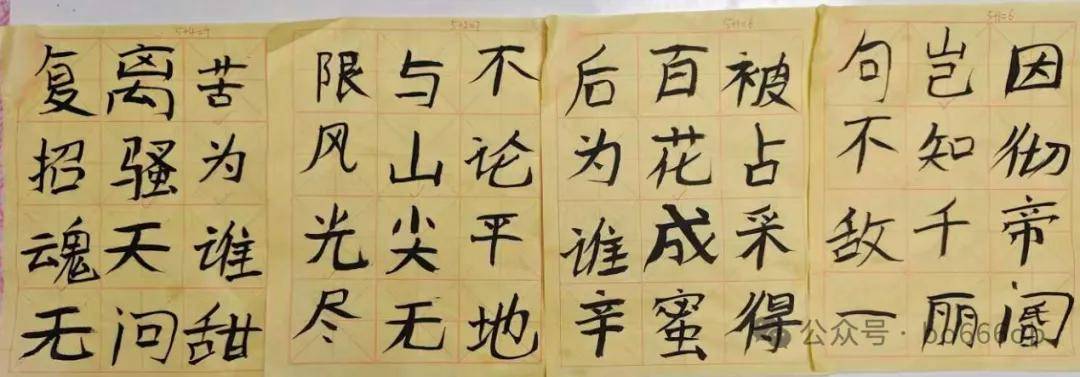 5+2=7
不论平地
与山尖无
限风光尽
5+1=6
被占采得
百花成蜜
后为谁辛
5+4=9
苦为谁甜
离骚天问
复招魂无
5+1=6
因彻帝阍
岂知千丽
句不敌一
公众号 ·